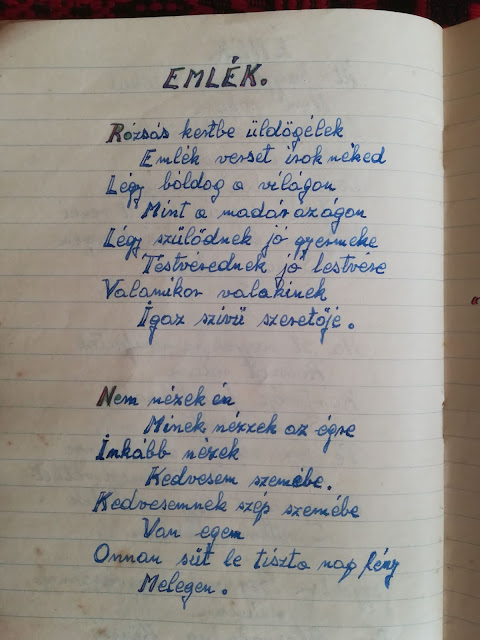 EMLÉK.
Rózsás kertbe üldögélek
Emlék verset irok néked
Légy bóldog a világon
Mint a madár azágon
Légy szülődnek jó gyermeke
Téstvérednek jó testvére
Valamikor valakinek
Ígaz szivü szeretője.
Nem nézek én
Minek nézzek az égre
Ínkább nézek
Kedvesem szemébe.
Kedvesemnek szép szemébe
Van egem
Onnan süt le tiszta nap fény
Melegen.